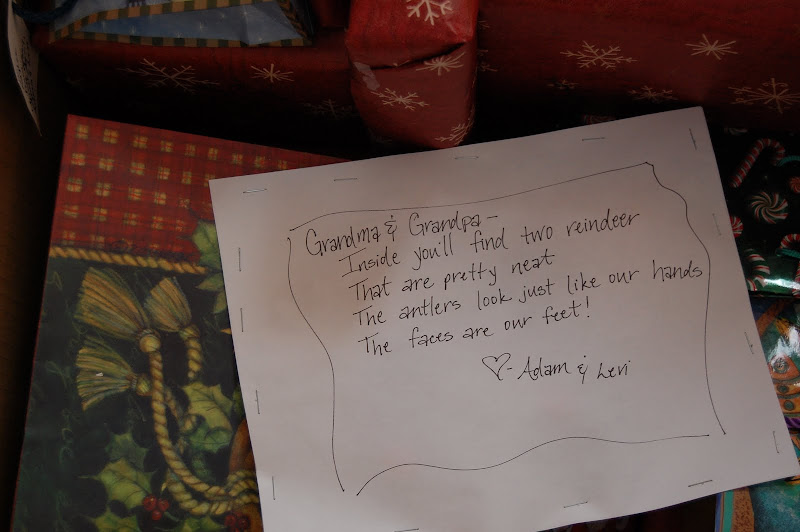 Grandma & Grandpa -
Inside you'll find two reindeer
That are pretty neat
The antlers look just like our hands
The faces are our feet!
♡- Adam & Levi